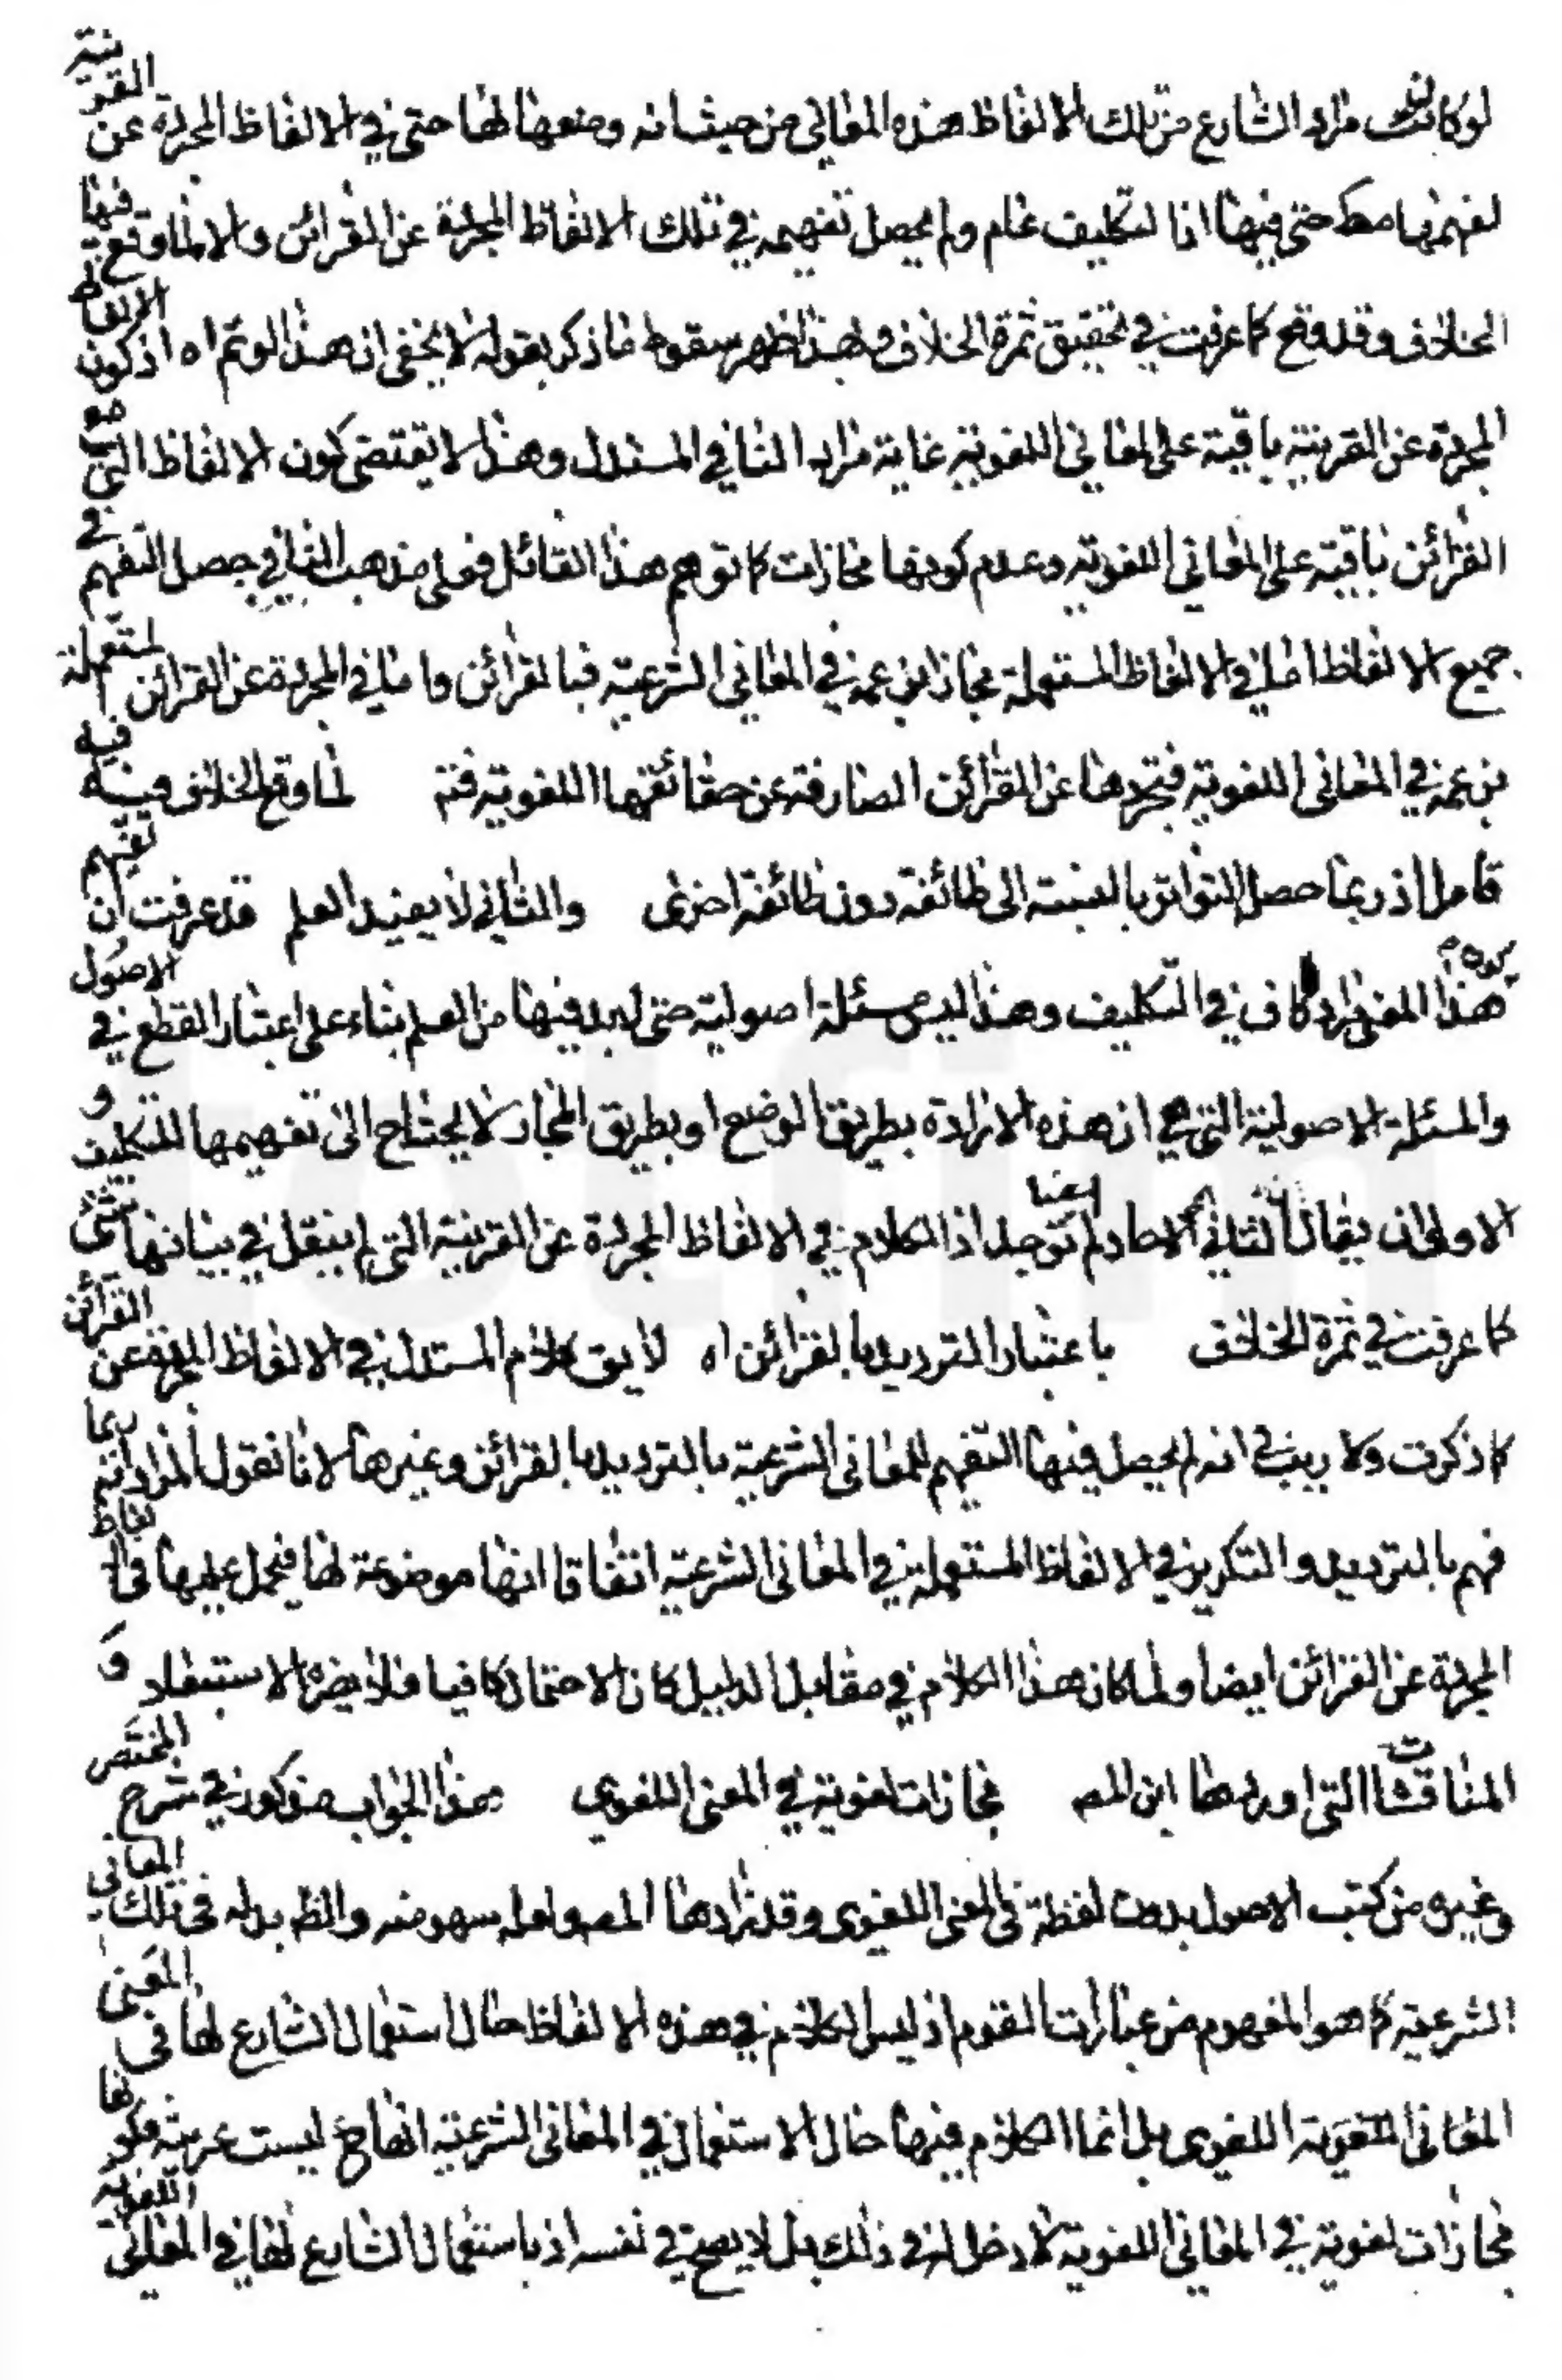 لو كانت مراد الشارع من تلك الالفاظ هذه المعاني من حيث انه وضعها لها حتى في الالفاظ المجردة عن القرينة
لفهمها حتى فيها اذا لتكليف عام ولم يحصل تفهيمه في تلك الالفاظ المجردة عن القرائن والا لما وقع فيها
الخلاف وقد وقع كما عرفت في تحقيق ثمرة الخلاف وبهذا ظهر سقوط ما ذكر بقوله لا يخفى ان هذا لو تم اه اذ كون الالفاظ
المجردة عن القرينة باقية على المعاني اللغوية غاية مراد النافي المستدل وهذا لا يقتضى كون الالفاظ التي مع
القرائن باقية على المعاني اللغوية وعدم كونها مجازات كما توهم هذا القائل فعلى مذهب النافي حصل التفهيم في
جميع الالفاظ اما في الالفاظ المستعملة مجازا بزعمه في المعاني الشرعية فبالقرائن واما في المجردة عن القرائن المستعملة
بزعمه في المعاني اللغوية فبتجردها عن القرائن الصارفة عن حقائقها اللغوية فتم لما وقع الخلاف فيه
تامل اذ ربما حصل التواتر بالنسبة الى طائفة دون طائفة اخرى والثاني لا يفيد العلم قد عرفت ان تفهيم
هذا المعنى مراد كاف في التكليف وهذا ليس مسئلة اصولية حتى لابد فيها من العلم بناء على اعتبار القطع في الاصول
والمسئلة الاصولية التي هي ان هذه الارادة بطريق الوضع او بطريق المجاز لا يحتاج الى تفهيمها للتكليف و
الاولى ان يقال الثاني الاحاد لم توجد ايضا اذ الكلام في الالفاظ المجردة عن القرينة التي لم ينقل في بيانها شئ
كما عرفت في ثمرة الخلاف باعتبار الترديد بالقرائن اه لا يق كلام المستدل في الالفاظ المجردة عن القرائن
كما ذكرت ولا ريب في انه لم يحصل فيها التفهيم للمعانى الشرعية بالترديد بالقرائن وغيرها لانا نقول المراد انه ربما
فهم بالترديد والتكرير في الالفاظ المستعملة في المعانى الشرعية اتفاقا انها موضوعة لها فيحمل عليها في الالفاظ
المجردة عن القرائن ايضا ولما كان هذا الكلام في مقابل الدليل كان الاحتمال كافيا فلا يضره الاستبعاد و
المناقشات التي اوردها ابن المص مجازات لغوية في المعنى اللغوي هذا الجواب مذكور في شرح المختصر
وغيره من كتب الاصول بدون لفظة في المعنى اللغوى وقد زادها المص ولعله سهو منه والظ بدله في تلك المعاني
الشرعية كما هو المفهوم من عبارات القوم اذ ليس الكلام في هذه الالفاظ حال استعمال الشارع لها في المعنى
المعانى اللغوية اللغوى بل انما الكلام فيها حال الاستعمال في المعانى الشرعية انها ح ليست عربية فكونها
مجازات لغوية في المعاني اللغوية لا دخل له في ذلك بل لا يصح في نفسه اذ باستعمال الشارع لها في المعاني اللغوية